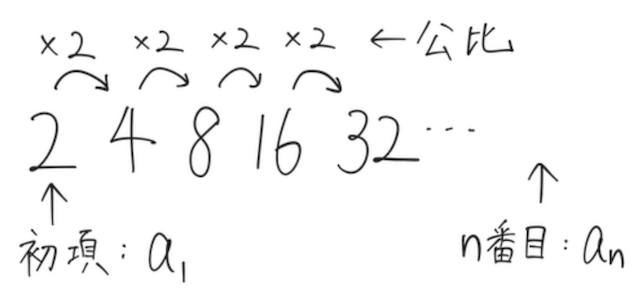 ×2 ×2 ×2 ×2 ←公比
2 4 8 16 32 …
初項：a₁ n番目：aₙ